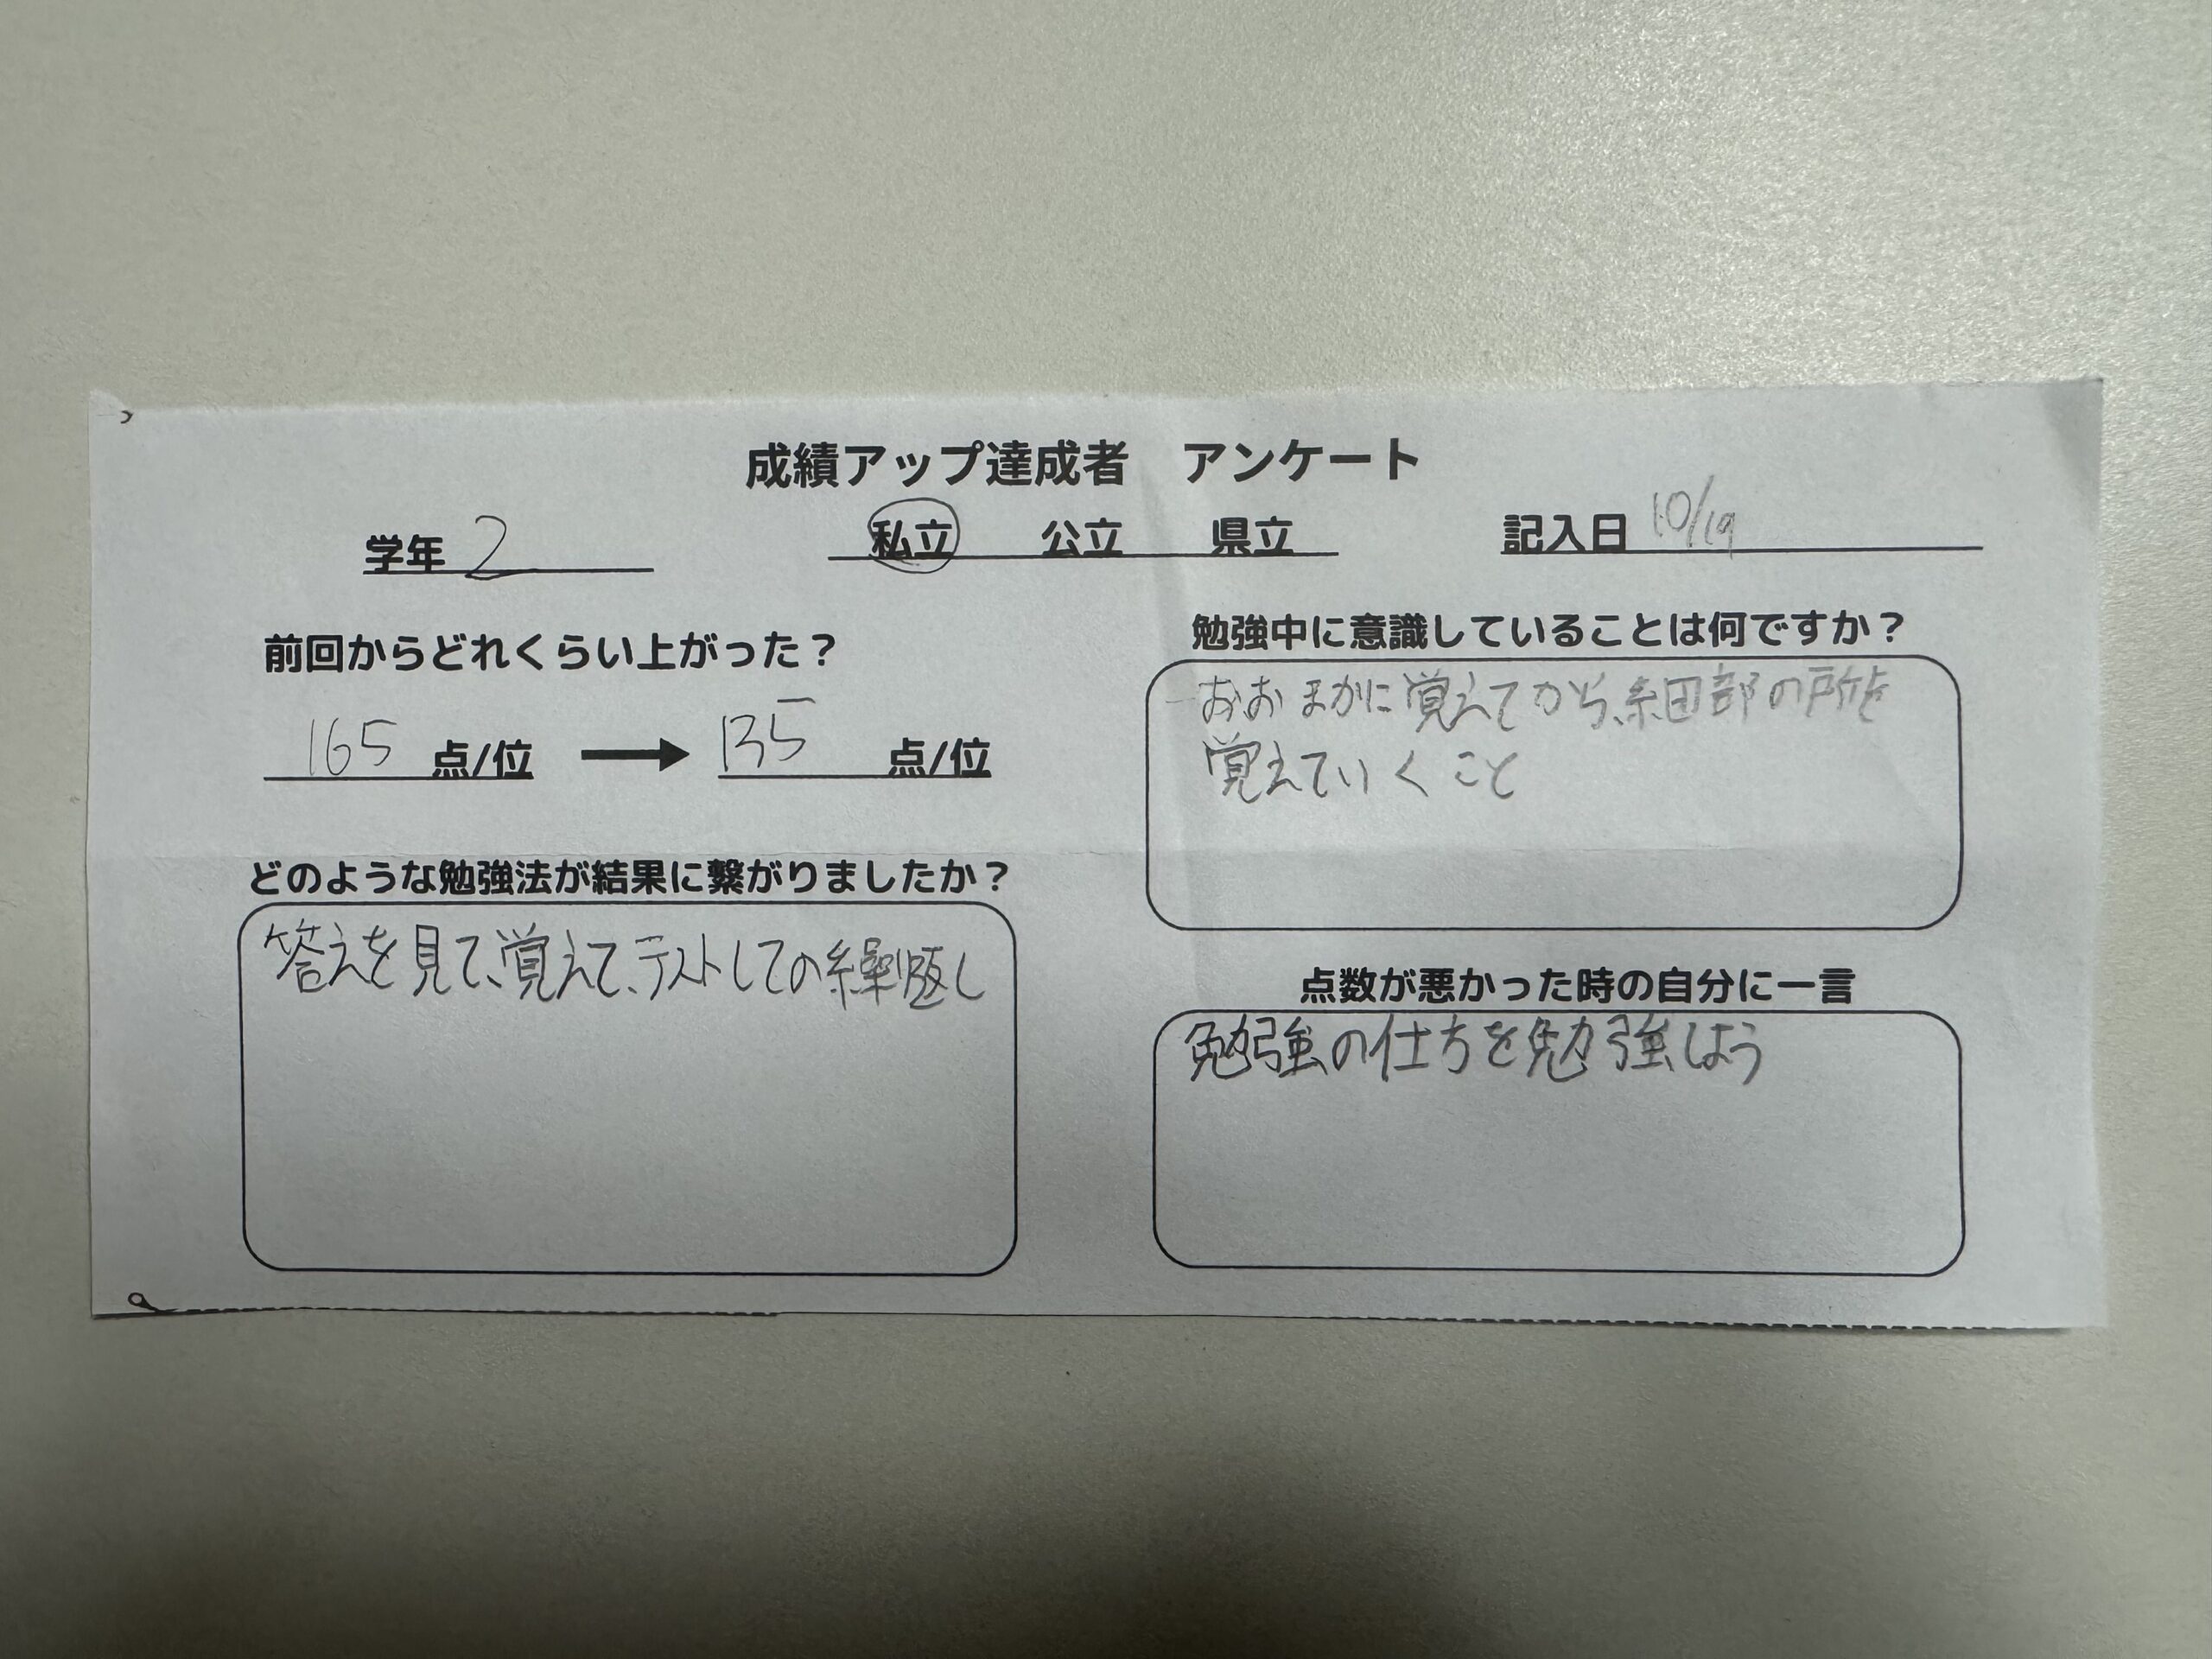 成績アップ達成者 アンケート
学年 2 私立 公立 県立 記入日 10/19
前回からどれくらい上がった？
165 点/位 → 135 点/位
どのような勉強法が結果に繋がりましたか？
答えを見て、覚えて、テストしての繰り返し
勉強中に意識していることは何ですか？
おおまかに覚えてから、細部の所を
覚えていくこと
点数が悪かった時の自分に一言
勉強の仕方を勉強しよう